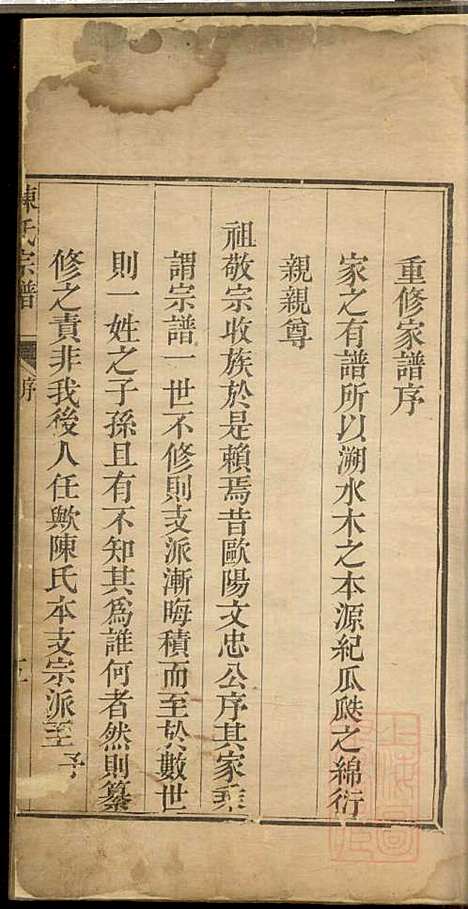 重修家譜序
家之有譜所以溯水木之本源紀瓜瓞之綿衍
親親尊
祖敬宗收族於是賴焉昔歐陽文忠公序其家乘
謂宗譜一世不修則支派漸晦積而至於數世
則一姓之子孫且有不知其為誰何者然則纂
修之責非我後人任歟陳氏本支宗派至予
陳氏宗譜 序